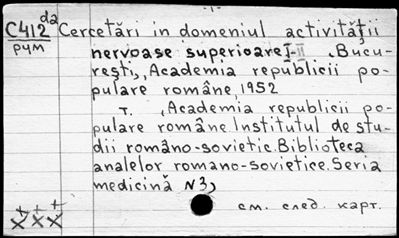 C412 da Cercetări in domeniul activității
рум nervoase superioare I-II, Bucu-
rești, Academia republicii po-
pulare române, 1952
т. , Academia republicii po-
pulare române Institutul de stu-
dii româno-sovietic. Biblioteca
analelor romano-sovietice. Seria
medicină N3)
см. след. карт.
XXX